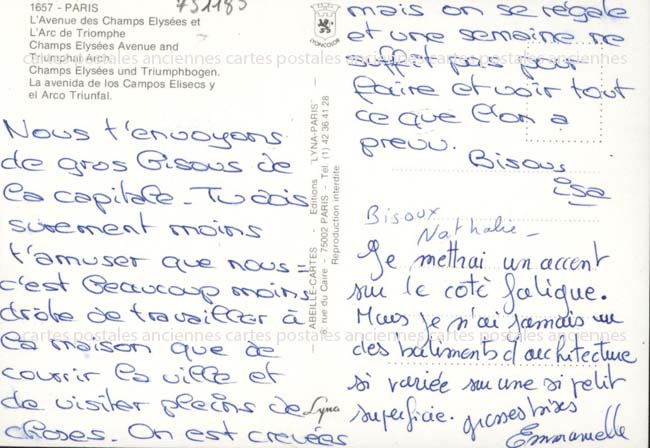 751185
1657 - PARIS
L'Avenue des Champs Elysées et
L'Arc de Triomphe
Champs Elysées Avenue and
Triumph Arch.
Champs Elysées und Triumphbogen.
La avenida de los Campos Elisecs y
el Arco Triunfal.
LYONCOLOR
cartes postales anciennes cartes postales anciennes cartes postales anciennes
Nous t'envoyons
de gros bisous de
la capitale. Tu dois
surement moins
t'amuser que nous =
c'est beaucoup moins
drôle de travailler à
la maison que de
courir la ville et
de visiter pleins de
choses. On est crevées
ABEILLE-CARTES - Editions "LYNA-PARIS"
8, rue du Caire - 75002 PARIS - Tél. (1) 42 36 41 28
Reproduction interdite
Lyna
mais on se régale
et une semaine ne
suffit pas pour
faire et voir tout
ce que l'on a
prevu.
Bisous
Isa
Bisoux
Nathalie -
Je metthai un accent
sur le coté
Mais je n'ai jamais vu
des bâtiments d'architecture
si variée sur une si petit
superficie. grosses bises
Emmanuelle
cartes postales anciennes cartes postales anciennes cartes postales anciennes